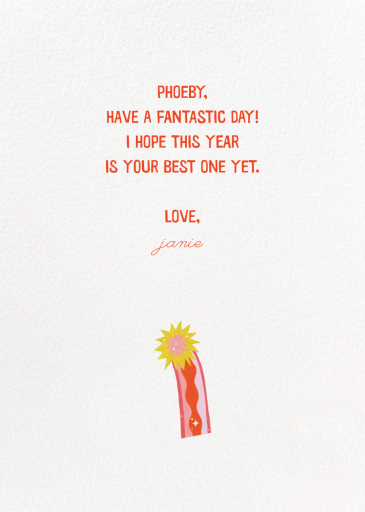 PHOEBY,
HAVE A FANTASTIC DAY!
I HOPE THIS YEAR
IS YOUR BEST ONE YET.
LOVE,
janie